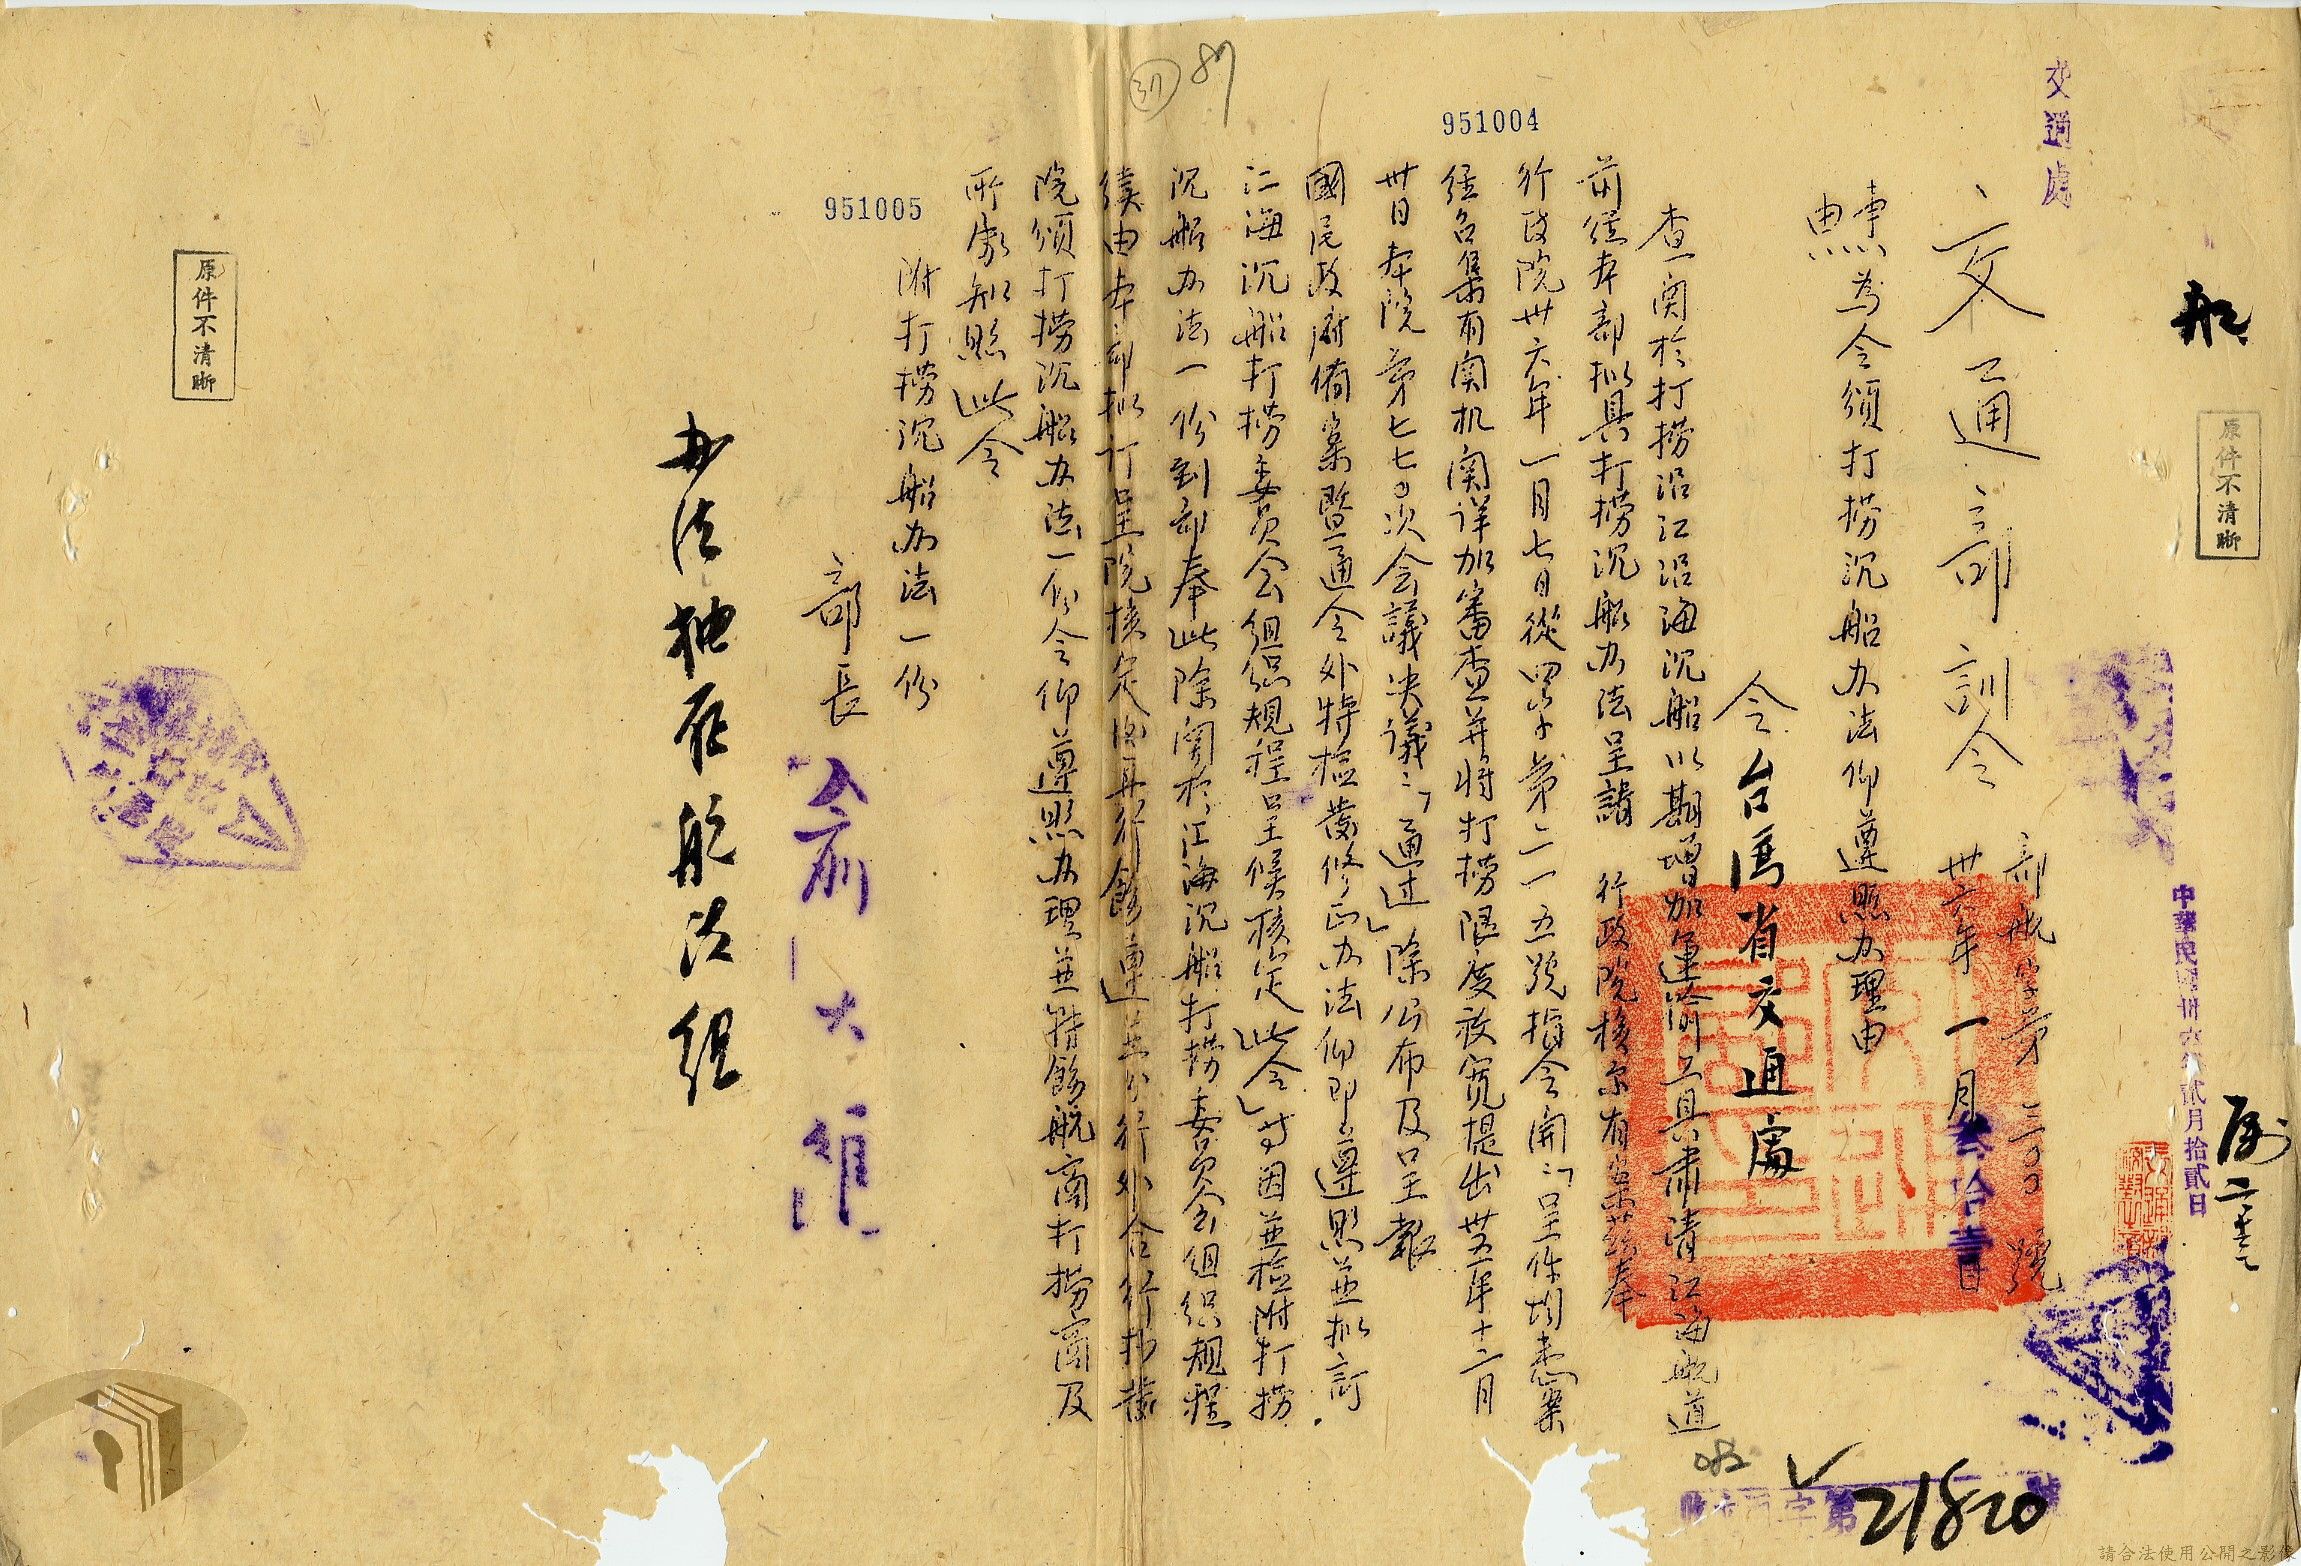 交通處
船
原件不清晰
交通部訓令
部航字第三一〇〇號
卅六年一月叁拾壹日
中華民國卅六年貳月拾貳日
事由 為令頒打撈沉船办法仰遵照办理由
令台灣省交通處
查関於打撈沿江沿海沉船以期增加運输工具肅清江海航道
前經本部拟具打撈沉船办法呈請 行政院核示有案茲奉
行政院卅六年一月七日從四字第二一五號指令開「呈件均悉案
經召集有関机関詳加審查並將打撈限度放寬提出卅五年十二月
卅日本院第七七〇次会議决議:「通过」除公布及呈報
國民政府備案暨通令外特檢發修正办法仰即遵照並拟訂
江海沉船打撈委員会组织規程呈候核定此令」等因並檢附打撈
沉船办法一份到部奉此除関於江海沉船打撈委員会组織規程
續由本部拟訂呈院核定後再行飭遵並分行外合行抄發
院頒打撈沉船办法一份令仰遵照办理並轉飭航商打撈商及
所屬知照此令
附打撈沉船办法一份
部長 俞大維
办法抽存航法组
951004
951005
87
37
原件不清晰
082
字第21820號
請合法使用公開之影像